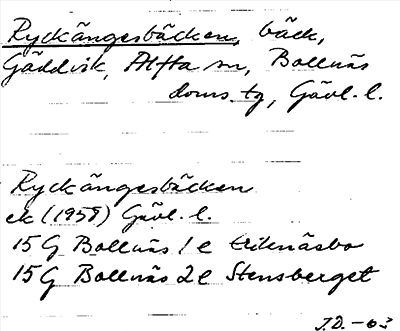 Ryckängesbäcken, bäck,
Gäddvik, Alfta sn, Bollnäs
doms.tg, Gävl. l.
Ryckängesbäcken
ek (1958) Gävl. l.
15 G Bollnäs 1 e Eriknäsbo
15 G Bollnäs 2 e Stensberget
J.D. -63